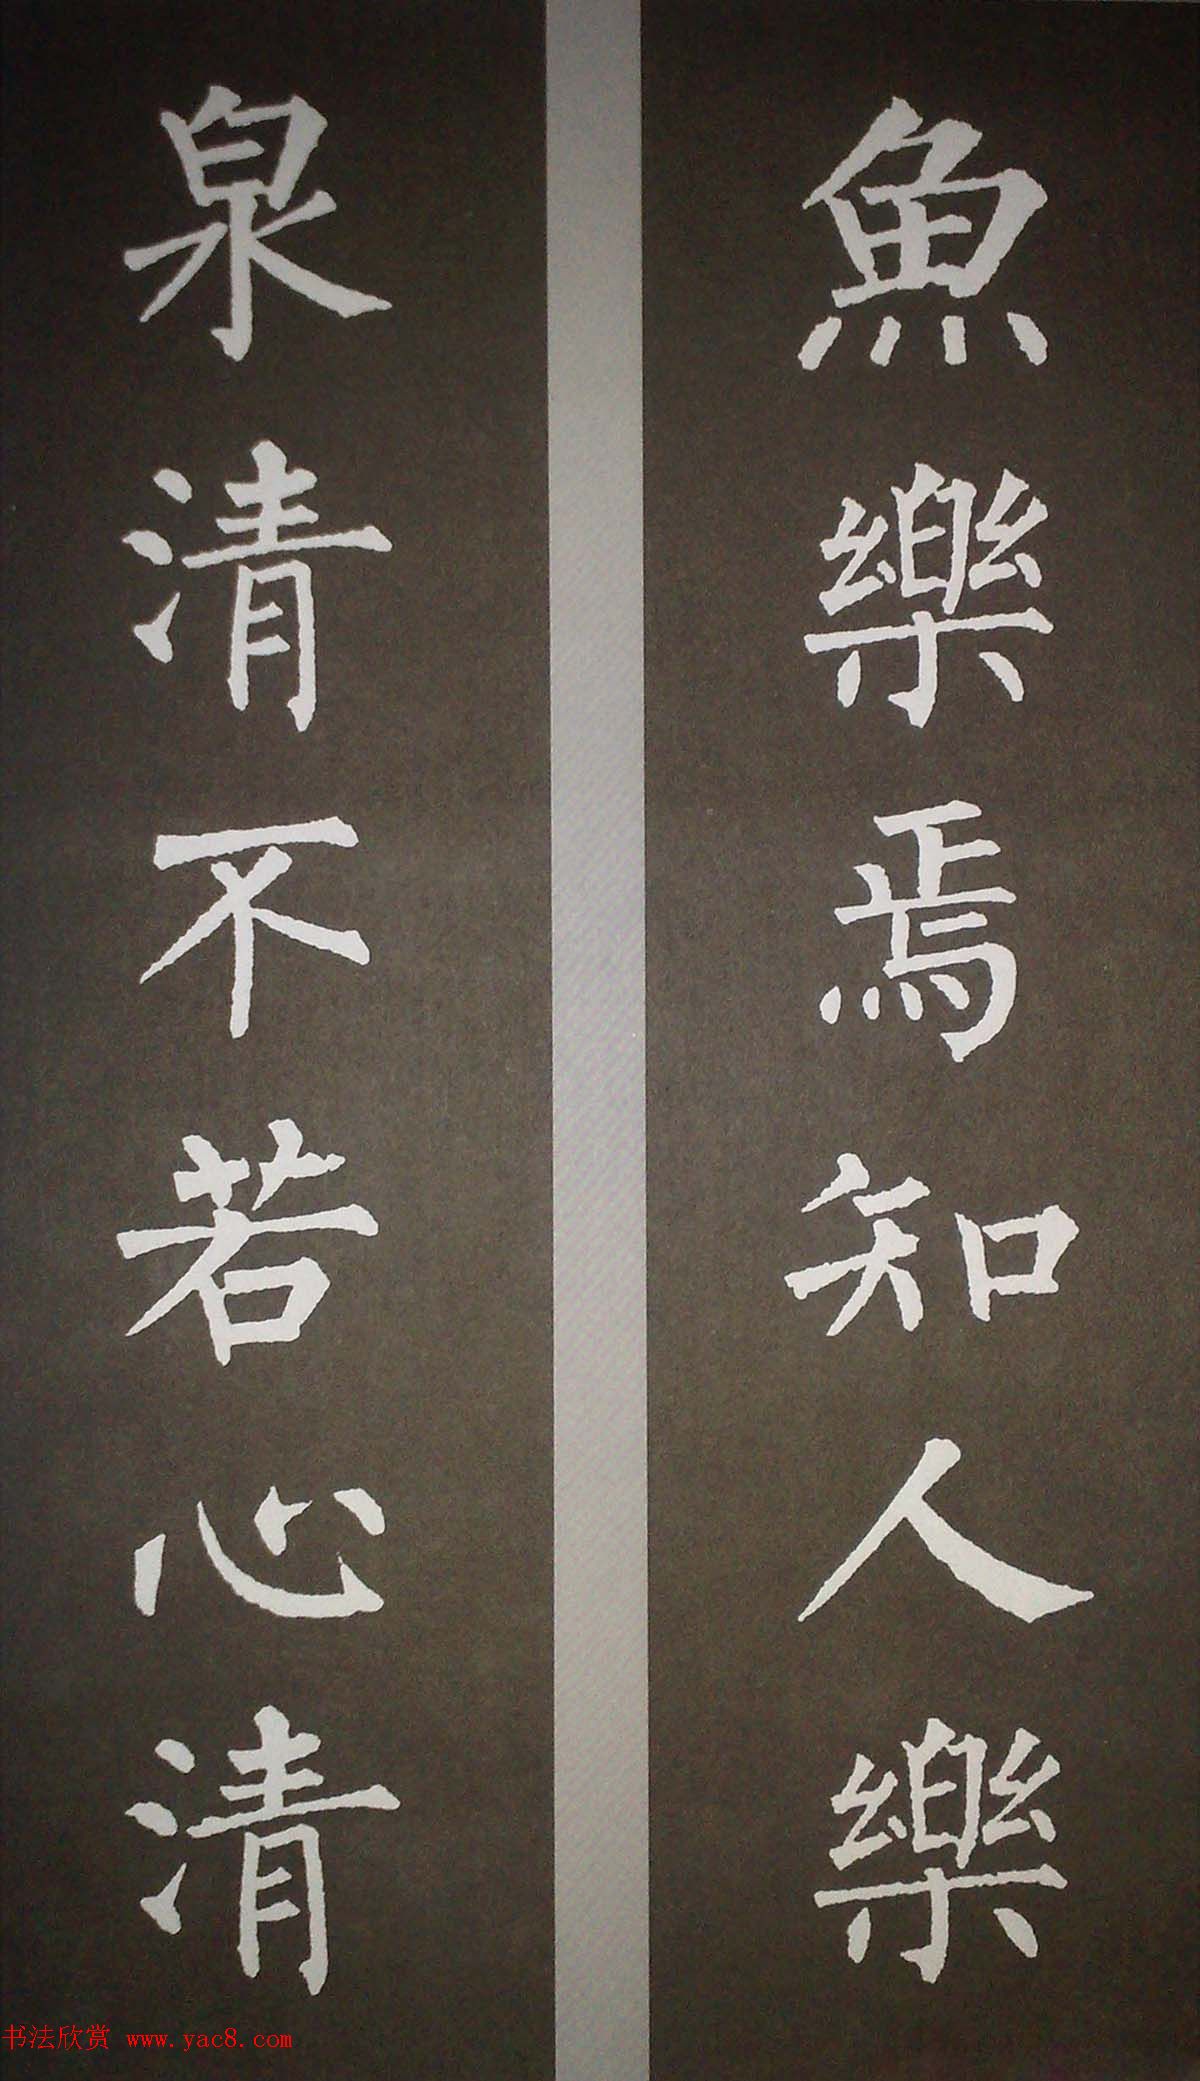 魚樂焉知人樂
泉清不若心清
书法欣赏 www.yac8.com